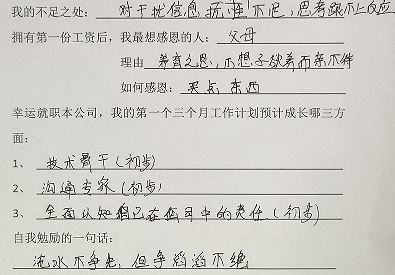 我的不足之处: 对干扰信息抗性不足,思考跟不上反应
拥有第一份工资后,我最想感恩的人: 父母
理由 养育之恩,不想子欲养而亲不待
如何感恩: 买点东西
幸运就职本公司,我的第一个三个月工作计划预计成长哪三方
面:
1、 技术骨干(初步)
2、 沟通专家(初步)
3、 全面认知自己在项目中的责任(初步)
自我勉励的一句话:
流水不争先,但争滔滔不绝